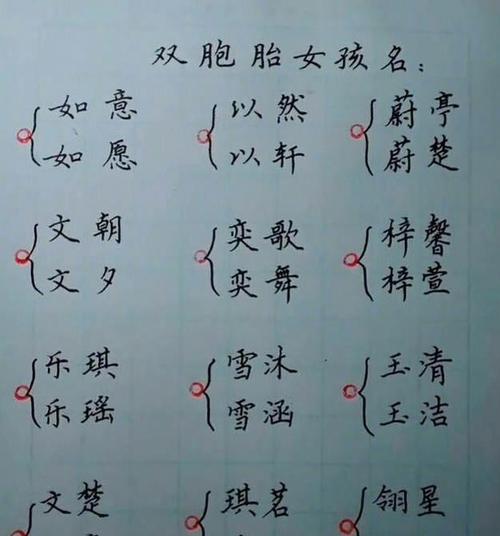 双胞胎女孩名：
如意 以然 蔚亭
如愿 以轩 蔚楚
文朝 奕歌 梓馨
文夕 奕舞 梓萱
乐琪 雪沐 玉清
乐瑶 雪涵 玉洁
文楚 琪茗 翎星